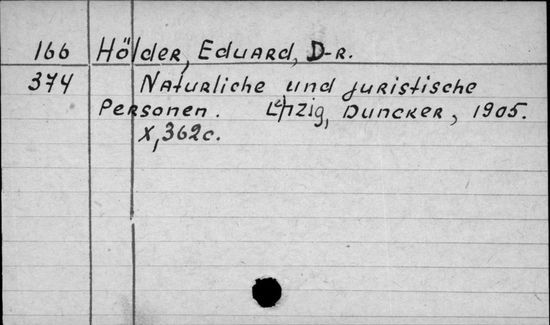 166 Hölder, Eduard, D-r.
374 Naturliche und juristische
Personen. Leipzig, Duncker, 1905.
X, 362c.